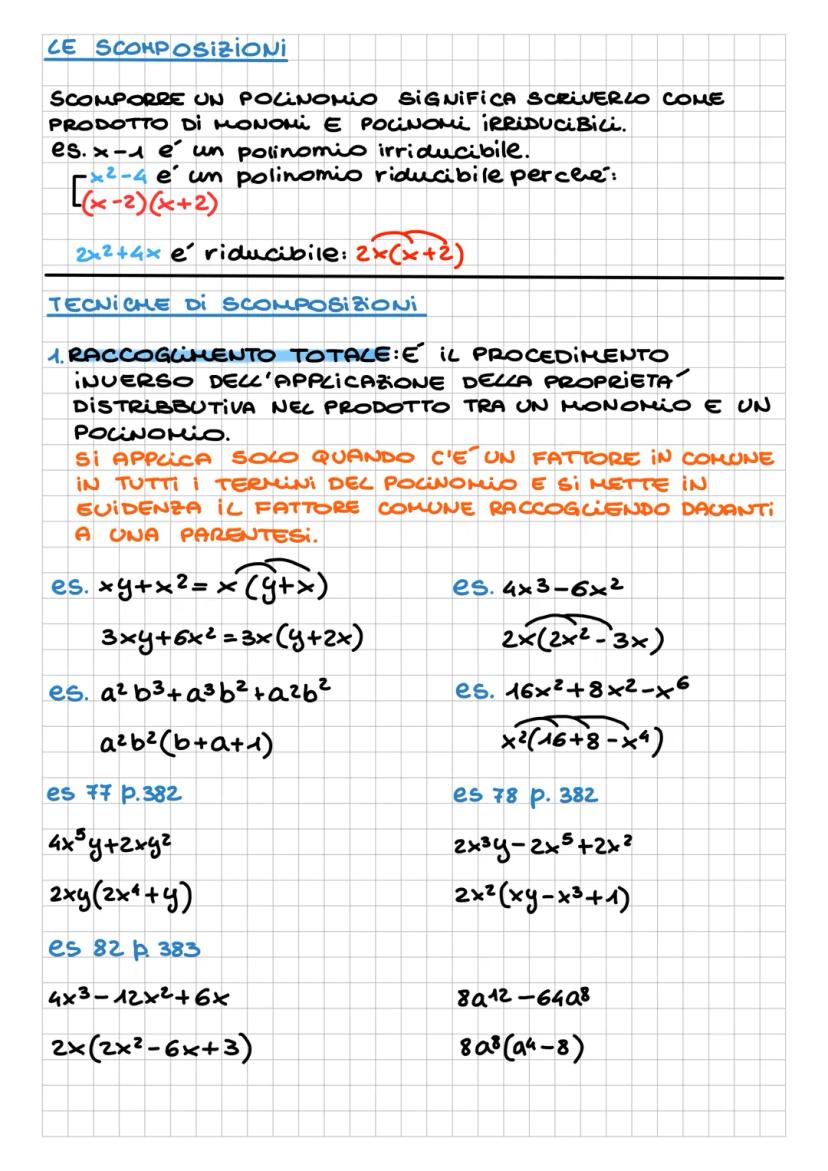 LE SCOMPOSIZIONI
SCOMPORRE UN POLINOMIO SIGNIFICA SCRIVERLO COME
PRODOTTO DI MONOMI E POLINOMI IRRIDUCIBILI.
es. x-1 é un polinomio irriducibile.
x²-4 é un polinomio riducibile perché:
(x-2)(x+2)
2x²+4x é riducibile: 2x(x+2)
TECNICHE DI SCOMPOSIZIONI
1. RACCOGLIMENTO TOTALE: É IL PROCEDIMENTO
INVERSO DELL'APPLICAZIONE DELLA PROPRIETA´
DISTRIBBUTIVA NEL PRODOTTO TRA UN MONOMIO E UN
POLINOMIO.
SI APPLICA SOLO QUANDO C'É UN FATTORE IN COMUNE
IN TUTTI I TERMINI DEL POLINOMIO E SI METTE IN
EVIDENZA IL FATTORE COMUNE RACCOGLIENDO DAVANTI
A UNA PARENTESI.
es. xy+x²= x(y+x)
3xy+6x²=3x(y+2x)
es. 4x³-6x²
2x(2x²-3x)
es. a²b³+a³b²+a²b²
a²b²(b+a+1)
es. 16x²+8x²-x⁶
x²(16+8-x⁴)
es 77 p.382
4x⁵y+2xy²
2xy(2x⁴+y)
es 78 p. 382
2x³y-2x⁵+2x²
2x²(xy-x³+1)
es 82 p. 383
4x³-12x²+6x
2x(2x²-6x+3)
8a¹²-64a⁸
8a⁸(a⁴-8)